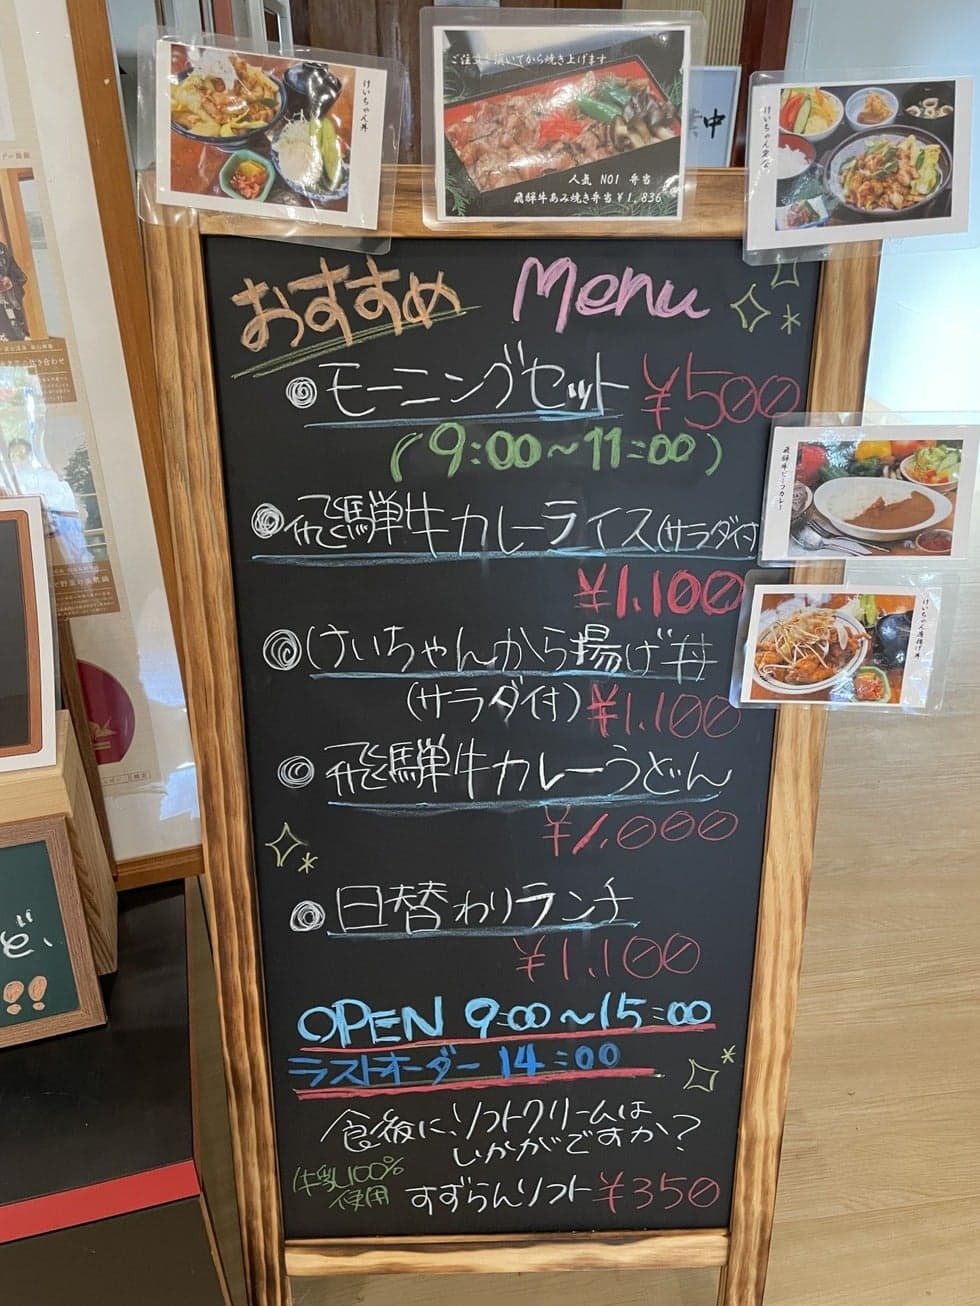 けいちゃん丼
ご注文を頂いてから焼き上げます
人気 NO1 弁当
飛騨牛あみ焼き弁当¥1,836
中
けいちゃん定食
おすすめ Menu
モーニングセット ¥500
(9:00~11:00)
飛騨牛カレーライス(サラダ付
¥1.100
けいちゃんから揚げ丼
(サラダ付) ¥1.100
飛騨牛カレーうどん
¥1.000
日替わりランチ
¥1.100
OPEN 9:00~15:00
ラストオーダー 14:00
食後に、ソフトクリームは
いかがですか?
牛乳100%
使用
すずらんソフト ¥350
飛騨牛ビーフカレー
けいちゃん唐揚げ丼
ど、
!!